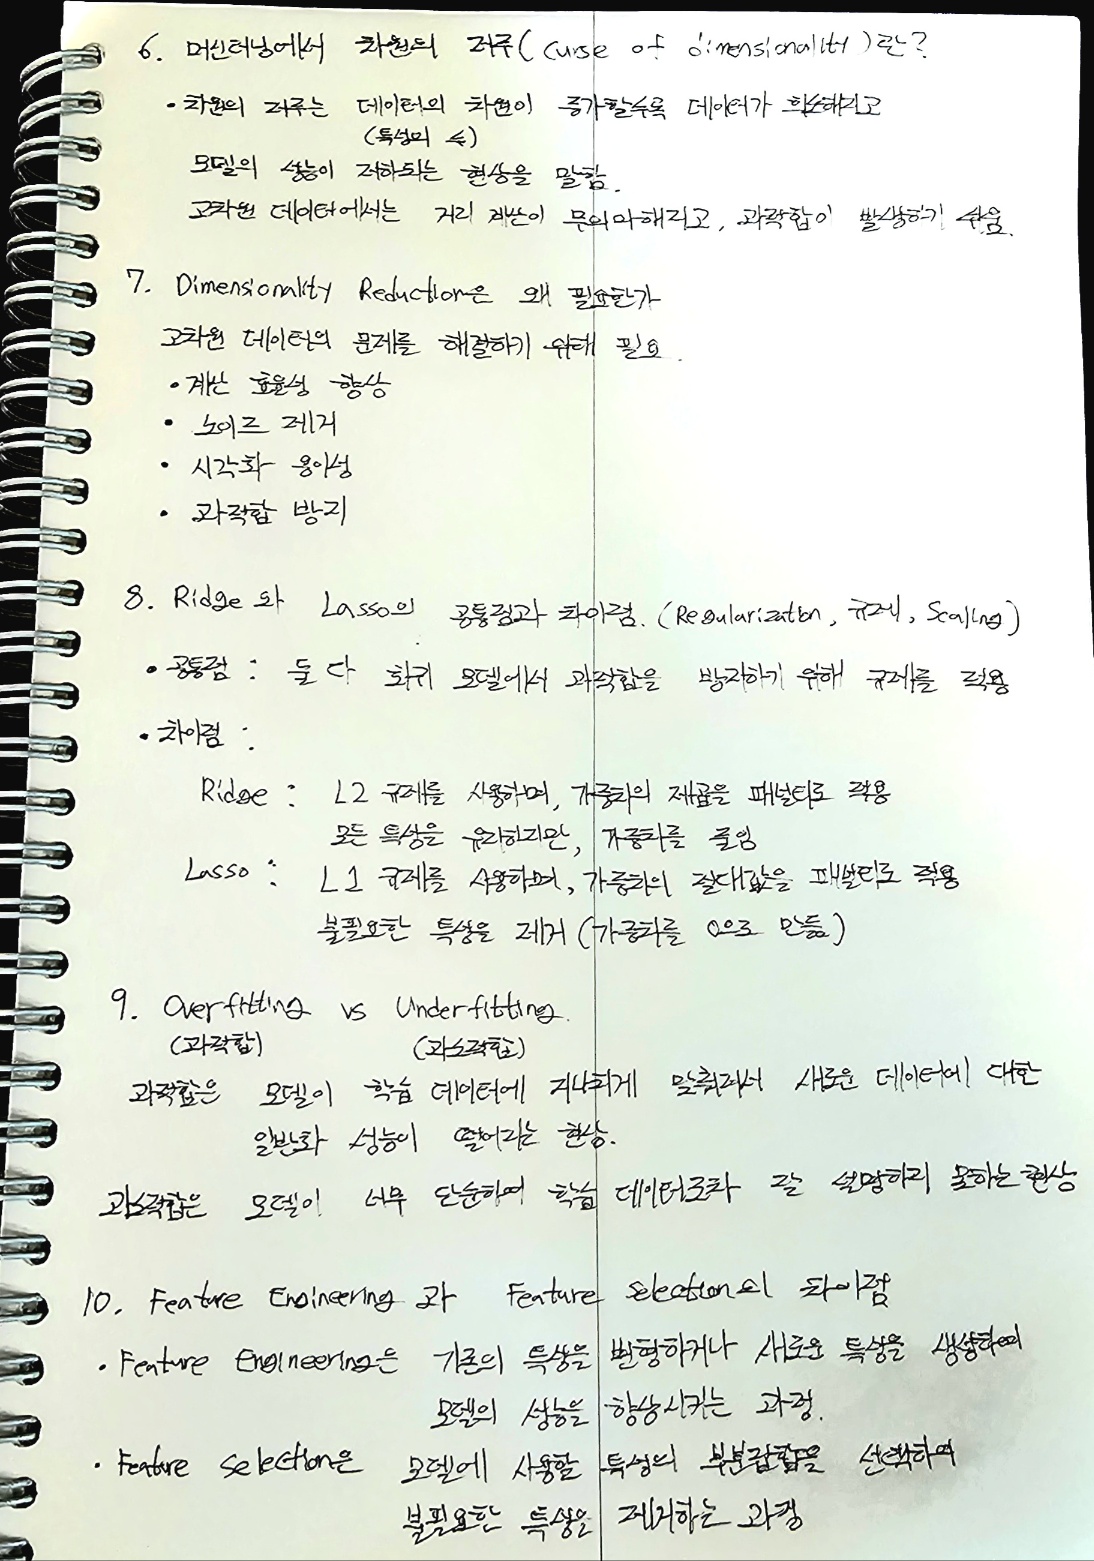 6. 머신러닝에서 차원의 저주( curse of dimensionality )란?
• 차원의 저주는 데이터의 차원이 증가할수록 데이터가 희소해지고
(특성의 수)
모델의 성능이 저하되는 현상을 말함.
고차원 데이터에서는 거리 계산이 무의미해지고, 과적합이 발생하기 쉬움.
7. Dimensionality Reduction은 왜 필요한가
고차원 데이터의 문제를 해결하기 위해 필요.
• 계산 효율성 향상
• 노이즈 제거
• 시각화 용이성
• 과적합 방지
8. Ridge와 Lasso의 공통점과 차이점. (Regularization, 규제, Scaling)
• 공통점 : 둘 다 회귀 모델에서 과적합을 방지하기 위해 규제를 적용
• 차이점 :
Ridge : L2 규제를 사용하며, 가중치의 제곱을 패널티로 적용
모든 특성을 유지하지만, 가중치를 줄임
Lasso : L1 규제를 사용하며, 가중치의 절대값을 패널티로 적용
불필요한 특성을 제거 (가중치를 0으로 만듦)
9. Overfitting vs Underfitting.
(과적합) (과소적합)
과적합은 모델이 학습 데이터에 지나치게 맞춰져서 새로운 데이터에 대한
일반화 성능이 떨어지는 현상.
과소적합은 모델이 너무 단순하여 학습 데이터조차 잘 설명하지 못하는 현상
10. Feature Engineering과 Feature Selection의 차이점
• Feature Engineering은 기존의 특성을 변형하거나 새로운 특성을 생성하여
모델의 성능을 향상시키는 과정.
• Feature selection은 모델에 사용할 특성의 부분집합을 선택하여
불필요한 특성을 제거하는 과정